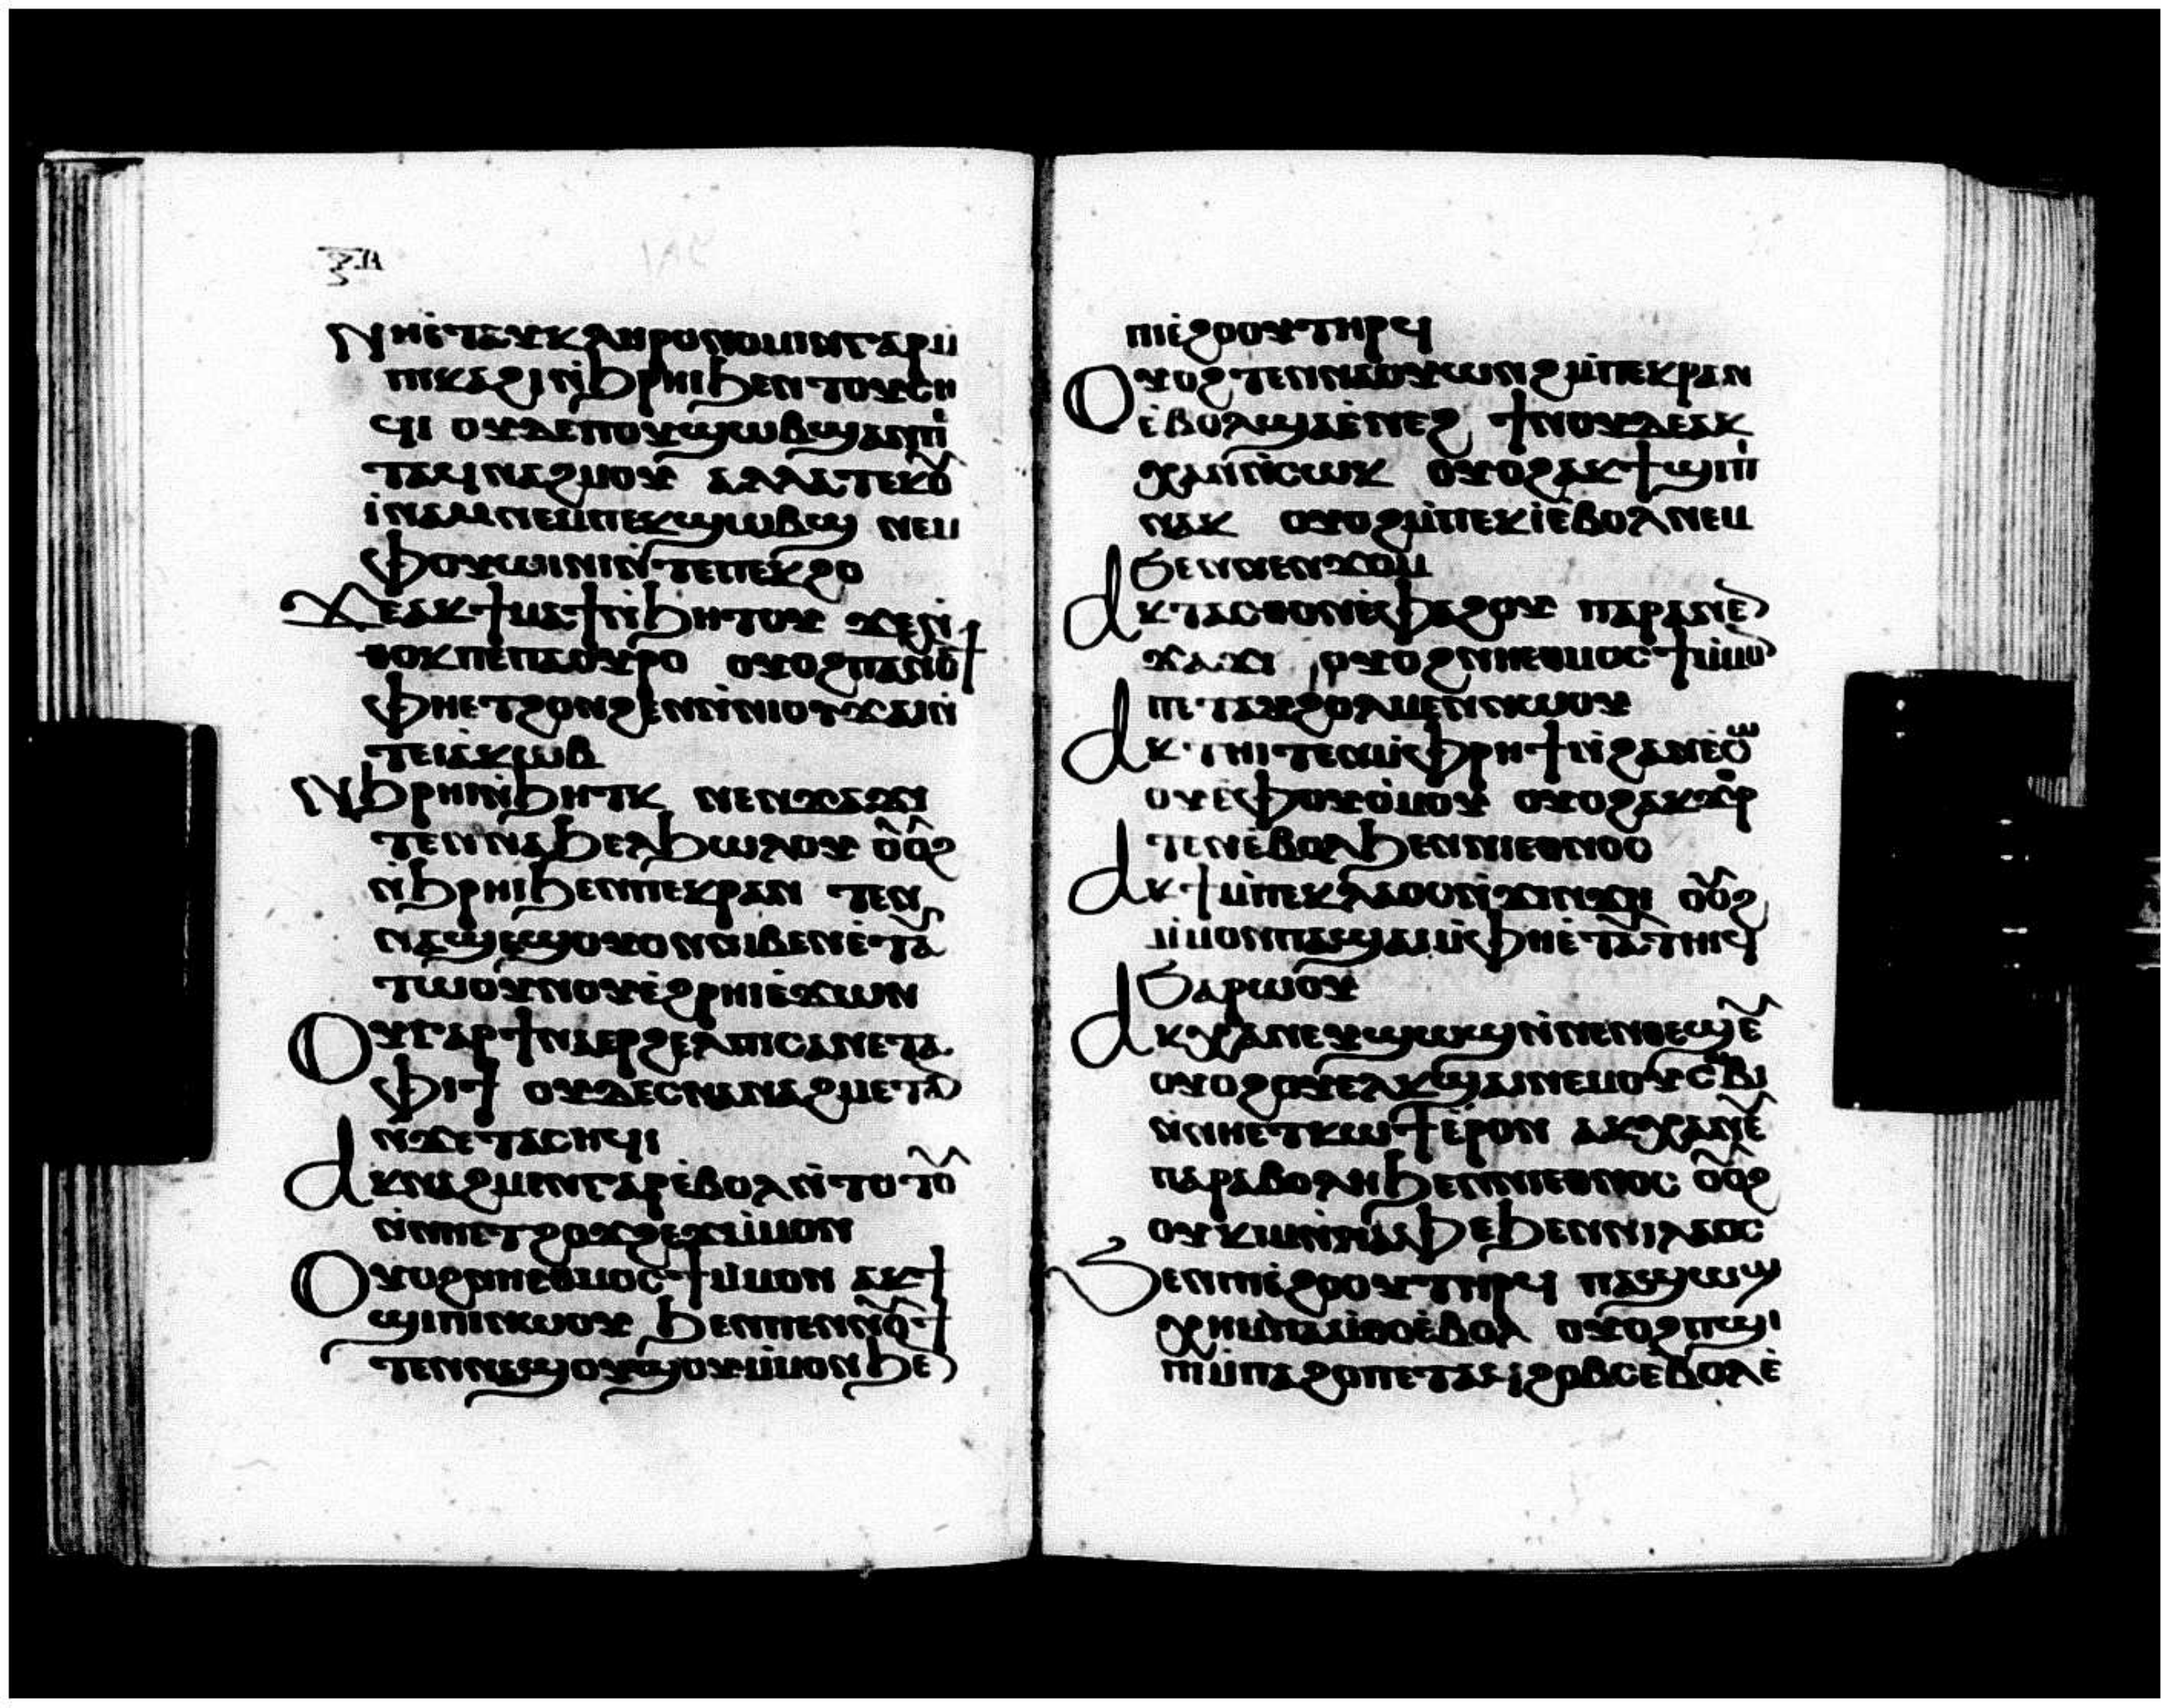 ⲛⲏⲉ̇ⲧⲁⲩⲕⲗⲏⲣⲟⲛⲟⲙⲓⲛⲅⲁⲣⲙ̇
ⲡⲓⲕⲁϩⲓⲛ̇ϧⲣⲏⲓϧⲉⲛⲧⲟⲩⲥⲏ
ϥⲓ ⲟⲩⲇⲉⲡⲟⲩϣⲱⲃϣⲁⲛⲡⲉ̇
ⲧⲁϥⲛⲁϩⲙⲟⲩ ⲁⲗⲗⲁⲧⲉⲕⲟ̅
ⲓ̇ⲛⲁⲙⲛⲉⲙⲡⲉⲕϣⲱⲃϣ ⲛⲉⲙ
ⲫⲟⲩⲱⲓⲛⲓⲛ̇ⲧⲉⲡⲉⲕϩⲟ
ϫⲉⲁⲕϯⲙⲁϯⲛ̇ϧⲏⲧⲟⲩ ϫⲉⲛ̇
ⲑⲟⲕⲡⲉⲡⲁⲟⲩⲣⲟ ⲟⲩⲟϩⲡⲁⲛⲟ̅ϯ
ⲫⲏⲉⲧϩⲟⲛϩⲉⲛⲛ̇ⲛⲓⲟⲩϫⲁⲓⲛ̇
ⲧⲉⲓⲁⲕⲱⲃ
ⲛ̇ϧⲣⲏⲓⲛ̇ϧⲏⲧⲕ ⲛⲉⲛϫⲁϫⲓ
ⲧⲉⲛⲛⲁϧⲉⲗϧⲱⲗⲟⲩ ⲟ̅ⲟ̅ϩ
ⲛ̇ϧⲣⲏⲓϧⲉⲛⲡⲉⲕⲣⲁⲛ ⲧⲉⲛ
ⲛⲁϣⲉϣⲟⲩⲟⲛⲛⲓⲃⲉⲛⲉ̇ⲧⲁ̅
ⲧⲱⲟⲩⲛⲟⲩⲉ̇ϩⲣⲏⲓⲉ̇ϫⲱⲛ
ⲟⲩⲅⲁⲣϯⲛⲁⲉⲣϩⲉⲗⲡⲓⲥⲁⲛⲉⲧⲁ
ⲫⲓϯ ⲟⲩⲇⲉⲥⲛⲁⲛⲁϩⲙⲉⲧⲁ̅
ⲛ̇ϫⲉⲧⲁⲥⲏϥⲓ
ⲁⲕⲛⲁϩⲙⲉⲛⲅⲁⲣⲉ̇ⲃⲟⲗⲛ̇ⲧⲟⲧⲟ̅
ⲛ̇ⲛⲏⲉⲧϩⲟϫϩⲉϫⲙ̇ⲙⲟⲛ
ⲟⲩⲟϩⲛⲏⲉⲑⲙⲟⲥϯⲙ̇ⲙⲟⲛ ⲁⲕϯ
ϣⲓⲡⲓⲛⲱⲟⲩ ϧⲉⲛⲡⲉⲛⲛⲟ̅ϯ
ⲧⲉⲛⲛⲁϣⲟⲩϣⲟⲩⲙ̇ⲙⲟⲛϧⲉ̅
ⲡⲓⲉ̇ϩⲟⲟⲩⲧⲏⲣϥ
ⲟⲩⲟϩⲧⲉⲛⲛⲁⲟⲩⲱⲛϩⲙ̇ⲡⲉⲕⲣⲁⲛ
ⲉ̇ⲃⲟⲗϣⲁⲉ̇ⲛⲉϩ ϯⲛⲟⲩⲇⲉⲁⲕ
ⲭⲁⲛ̇ⲛ̇ⲥⲱⲕ ⲟⲩⲟϩⲁⲕϯϣⲓⲡⲓ̇
ⲛⲁⲛ ⲟⲩⲟϩⲙ̇ⲡⲉⲕⲓ̇ⲉ̇ⲃⲟⲗⲛⲉⲙ
ϧⲉⲛⲛⲉⲛϫⲟⲙ
ⲁⲕⲧⲁⲥⲑⲟⲛⲉ̇ⲫⲁϩⲟⲩ ⲡⲁⲣⲁⲛⲉ̅
ϫⲁϫⲓ ⲟⲩⲟϩⲛⲏⲉⲑⲙⲟⲥϯⲙ̇ⲙⲟ̅
ⲡⲉⲧⲁⲩϩⲟⲗⲙⲉⲛⲛⲱⲟⲩ
ⲁⲕⲧⲏⲓⲧⲉⲛⲙ̇ⲫⲣⲏϯⲛ̇ϩⲁⲛⲉ̇ⲥⲱ
ⲟⲩⲉ̇ⲫⲟⲩⲟ̇ⲙⲟⲩ ⲟⲩⲟϩⲁⲕϫⲣ
ⲧⲉⲛⲉ̇ⲃⲟⲗϧⲉⲛⲛⲓⲉⲑⲛⲟⲥ
ⲁⲕϯⲙ̇ⲡⲉⲕⲗⲁⲟⲥⲛ̇ϫⲓⲛϫⲏ ⲟ̅ⲟ̅ϩ
ⲙ̇ⲙⲟⲛⲡⲁϣⲁⲓⲙ̇ⲫⲏⲉⲧⲁ̅ⲧⲏⲓϥ
ϧⲁⲣⲱⲟⲩ
ⲁⲕⲭⲁⲛⲉⲩϣⲱϣⲛ̇ⲛⲉⲛⲑⲉϣⲉ̅
ⲟⲩⲟϩⲟⲩⲉⲗⲕϣⲁⲓⲛⲉⲙⲟⲩⲥⲱⲃⲓ
ⲛ̇ⲛⲏⲉⲧⲕⲱϯⲉ̇ⲣⲟⲛ ⲁⲕⲭⲁⲛⲉ̅
ⲡⲁⲣⲁⲃⲟⲗⲏϧⲉⲛⲛⲓⲉⲑⲛⲟⲥ ⲟ̅ⲟ̅ϩ
ⲟⲩⲕⲓⲙⲛ̇ⲛⲁⲫⲉϧⲉⲛⲛⲓⲗⲁⲟⲥ
ϧⲉⲛⲡⲓⲉ̇ϩⲟⲟⲩⲧⲏⲣϥ ⲡⲁϣⲱϣ
ⲭⲏⲙ̇ⲡⲁⲙ̇ⲑⲟⲉ̇ⲃⲟⲗ ⲟⲩⲟϩⲡϣⲓ
ⲡⲓⲙ̇ⲡⲁϩⲟⲡⲉⲧⲁϥϩⲟⲃⲥⲉ̇ⲃⲟⲗⲉ̇